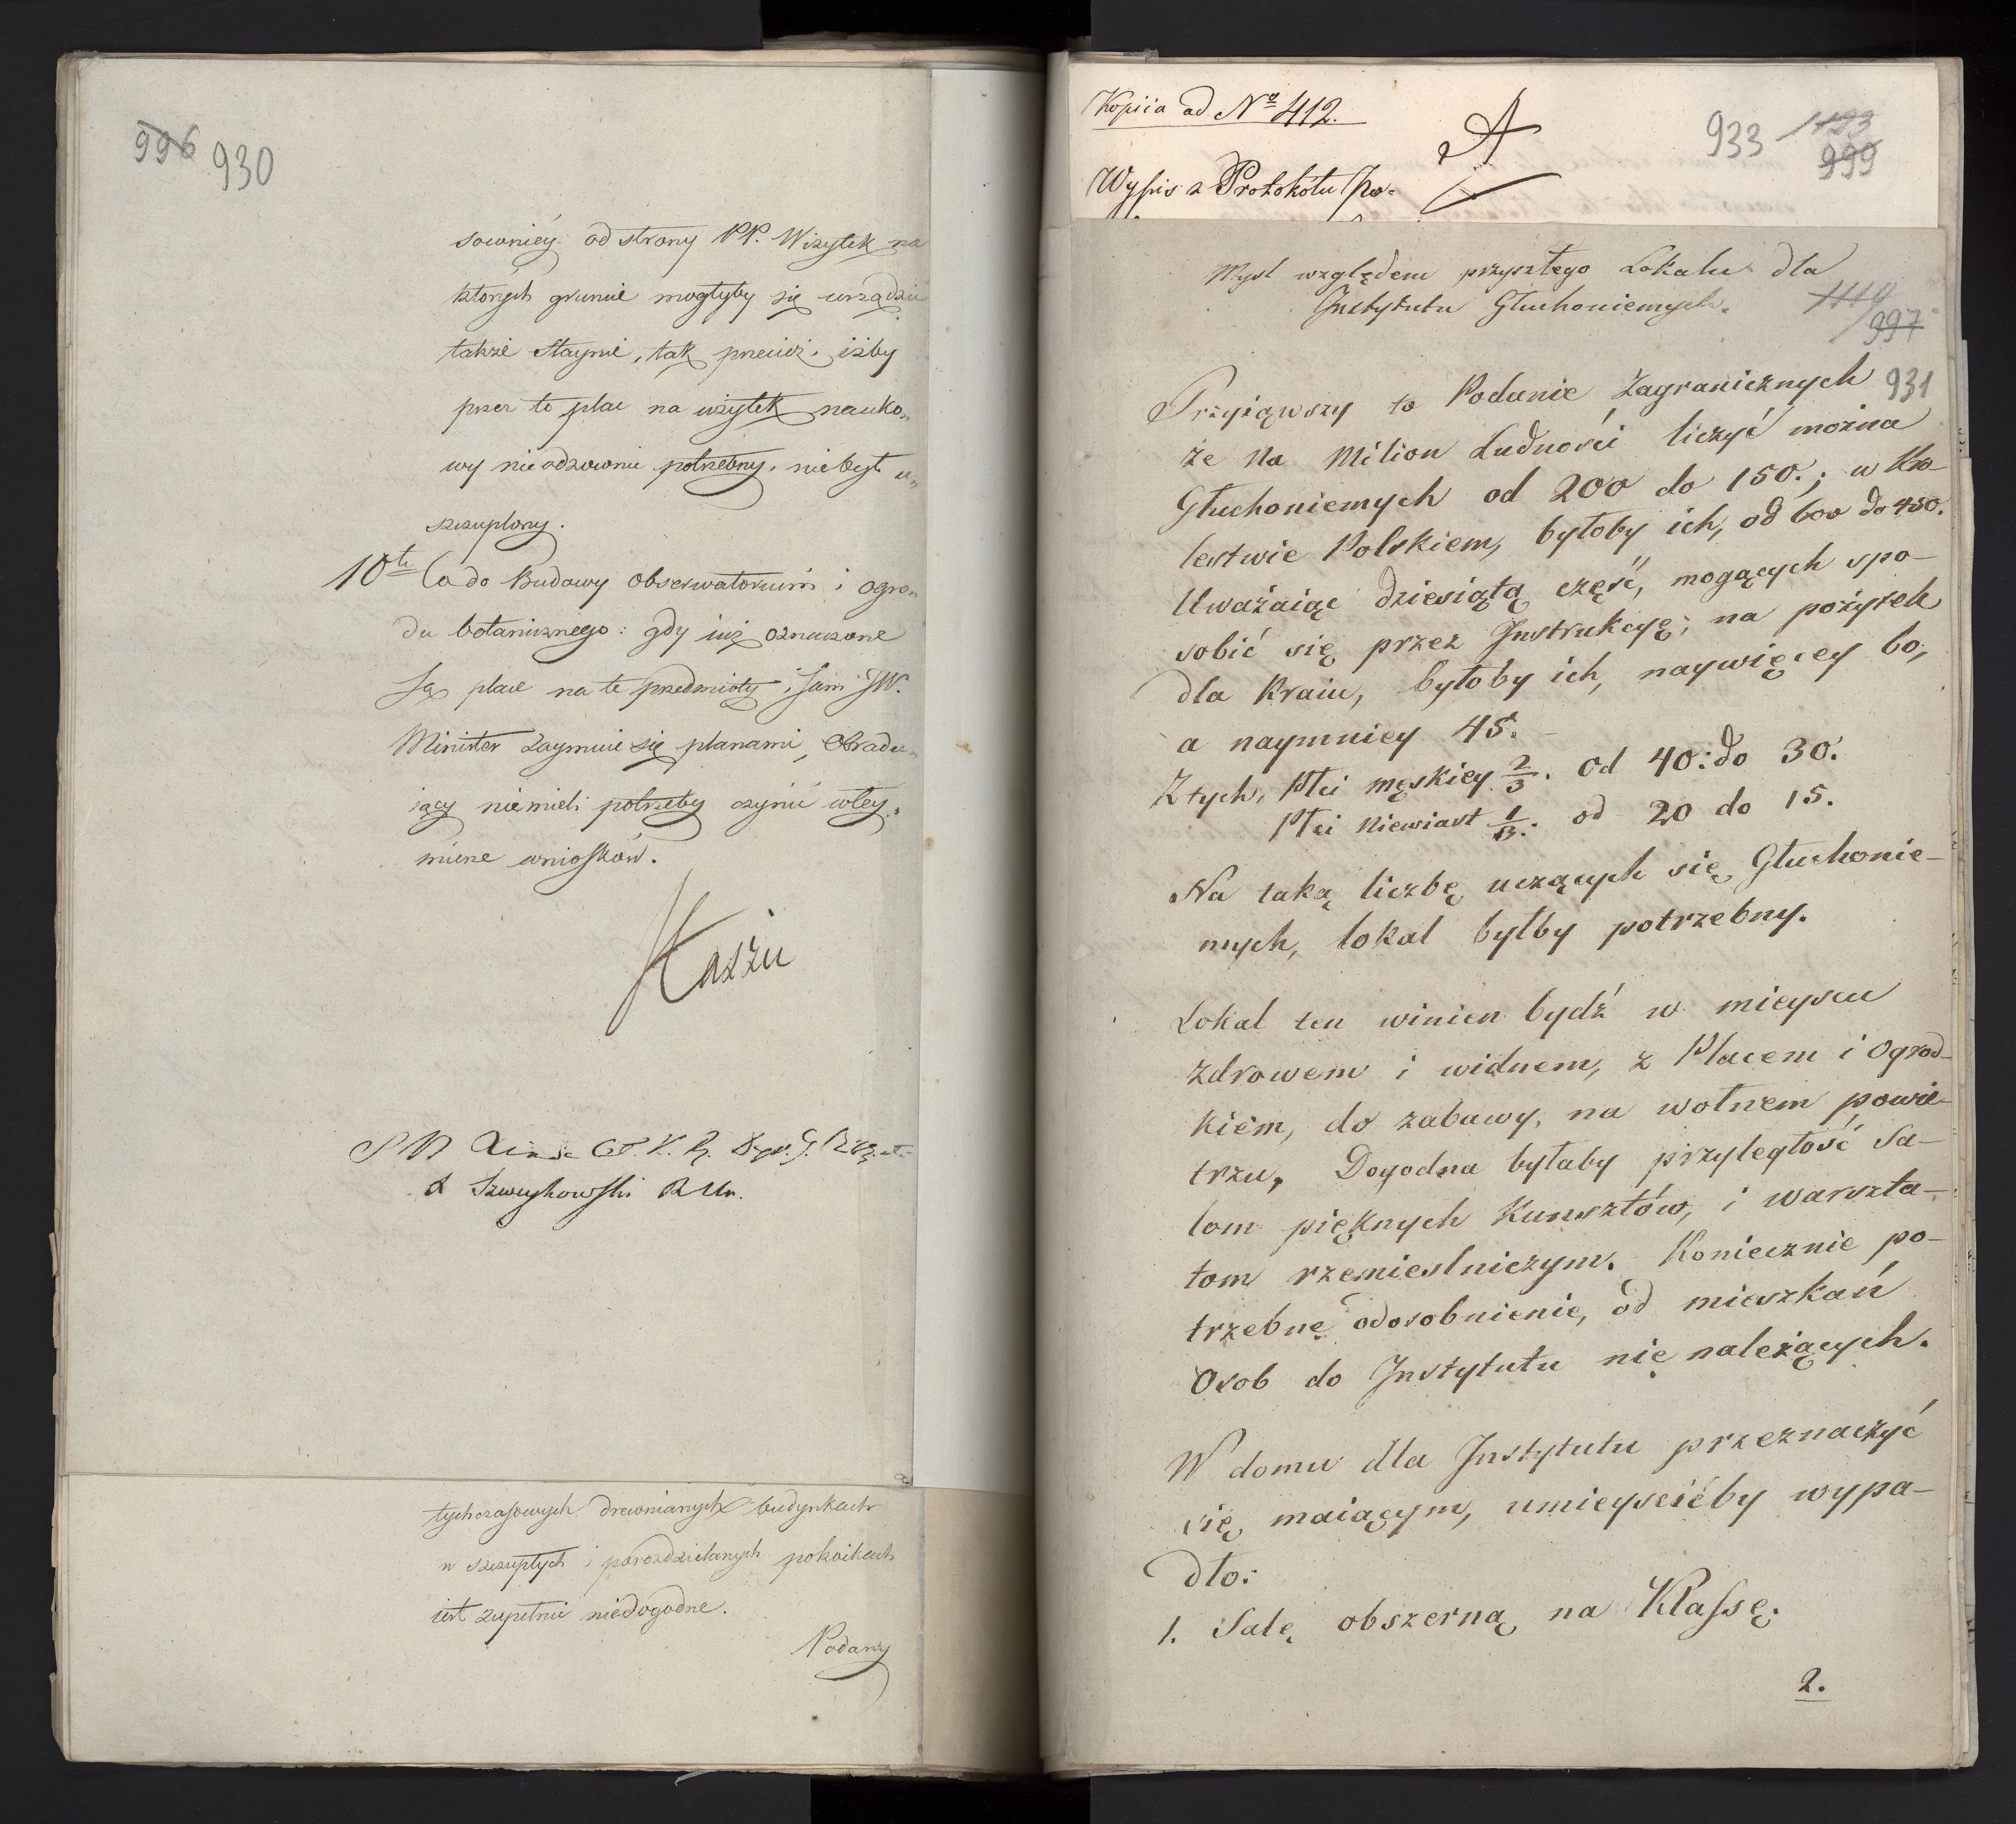 996 930
sowniéy od strony PP. Wizytek na
których gruncie mogłyby się urządzić
także staynie, tak przecież, iżby
przez to plac na użytek nauko„
wy nieodzownie potrzebny, niebył u„
szczuplony.
10te Co do Budowy Obserwatorium i ogro„
du botanicznego: gdy iuż oznaczone
są place na te przedmioty i sam JW.
Minister zaymuie się planami, Obradu„
iący nie mieli potrzeby czynić w tey„
mierze wniosków.
Staszic
A Szweykowski R Un.
tychczasowych drewnianych budynkach
w szczupłych i porozdzielanych pokoikach
iest zupełnie niedogodne.
Podany
Kopiia ad No 412.
A
933 1193
999
Wypis z Protokółu Po=
Mysl względem przyszłego Lokalu dla
Instytutu Głuchoniemych.
1114
997
931
Przyiąwszy to Podanie Zagranicznych
że na Milion Ludności liczyć można
Głuchoniemych od 200 do 150.; w Kró-
lestwie Polskiem, byłoby ich, od 600 do 450.
Uważaiąc dziesiątą część, mogących spo-
sobić się przez Instrukcyę, na pożytek
dla Kraiu, byłoby ich, naywięcey 60,
a naymniey 45.
Z tych, Płci męskiey 2/3. od 40: do 30.
Płci Niewiast 1/3. od 20 do 15.
Na taką liczbę uczących się Głuchonie-
mych, lokal byłby potrzebny.
Lokal ten winien bydź w mieyscu
zdrowem i widnem, z Placem i Ogrod-
kiem, do zabawy, na wolnem powie-
trzu. Dogodna byłaby przyległość Sa-
lom pięknych Kunsztów, i warszta-
tom rzemieslniczym. Koniecznie po-
trzebne odosobnienie, od mieszkań
Osob do Instytutu nie należących.
W domu dla Instytutu przeznaczyć
się maiącym, umieyscićby wypa-
dło:
1. Salę obszerną na Klassę.
2.